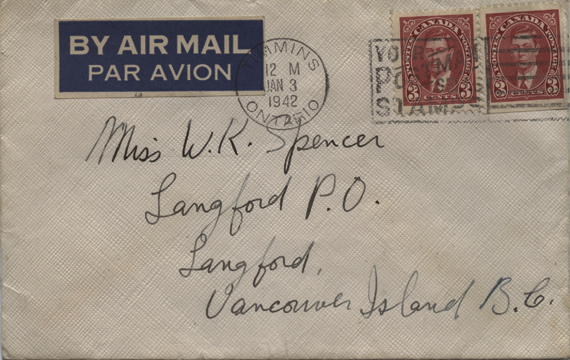 BY AIR MAIL
PAR AVION
TIMMINS
12 M
JAN 3
1942
ONTARIO
POSTES CANADA POSTAGE
3 CENTS 3
POSTES CANADA POSTAGE
3 CENTS 3
Miss W.K. Spencer
Langford P.O.
Langford,
Vancouver Island B.C.